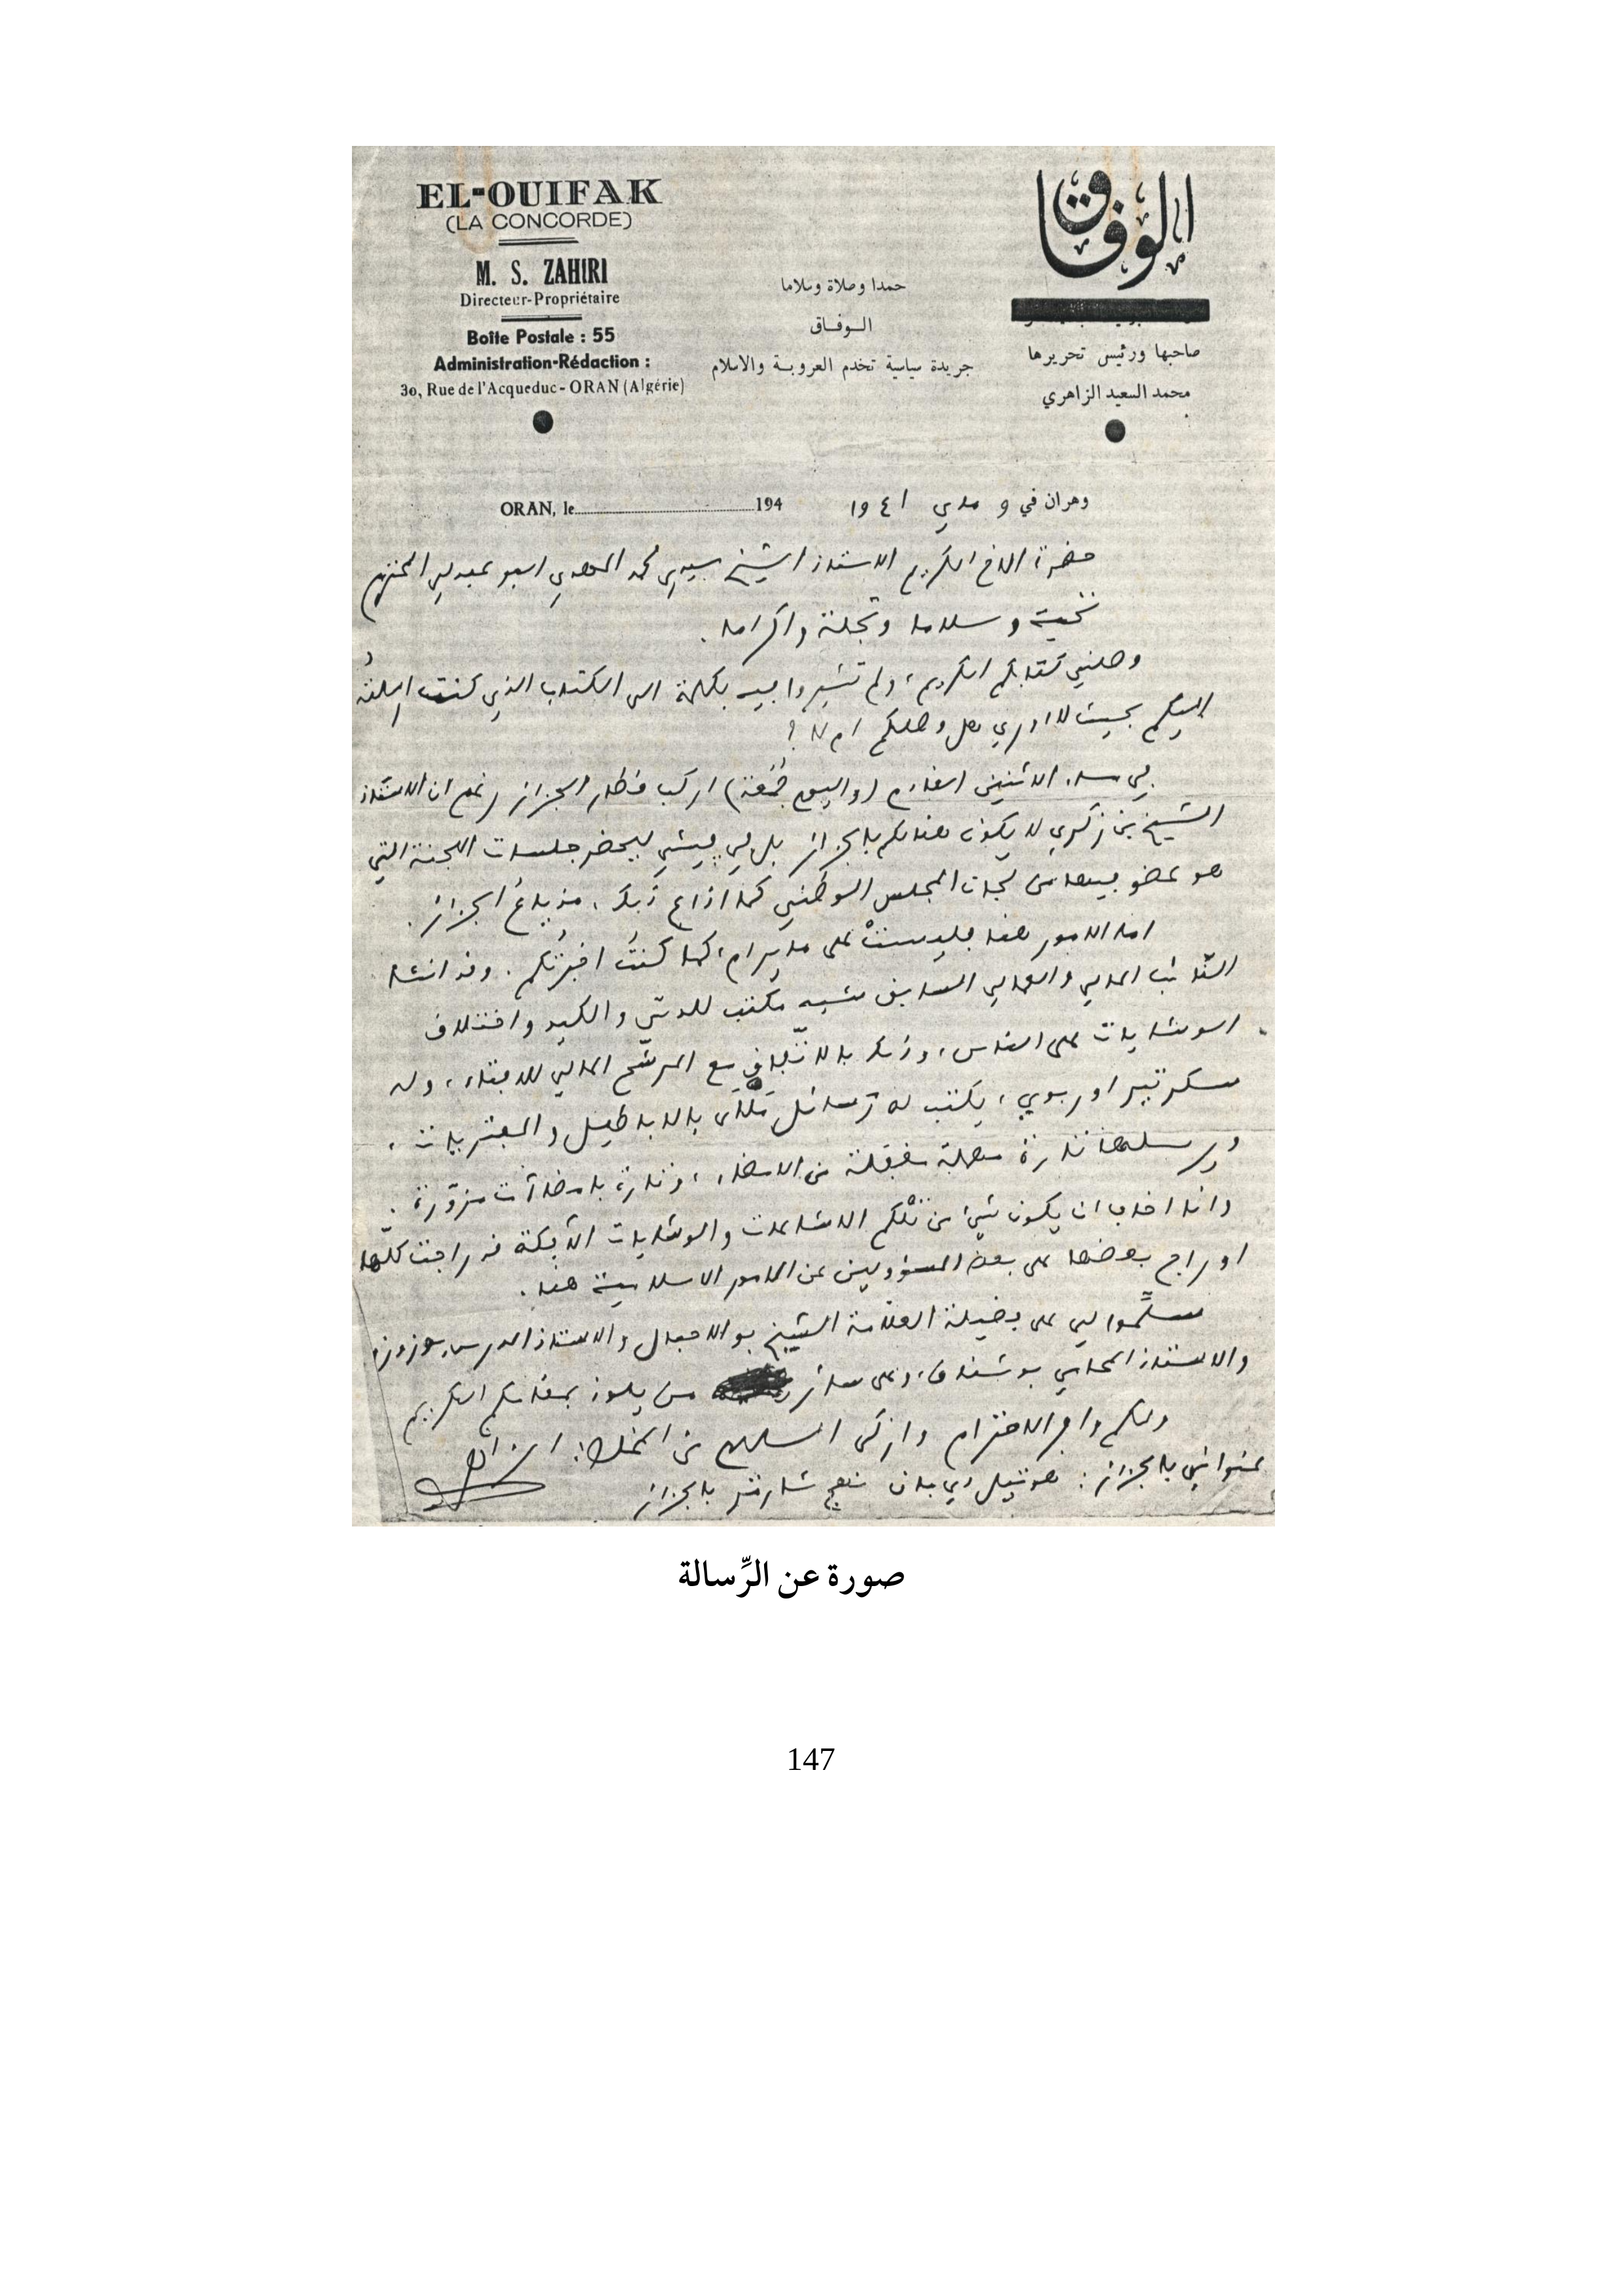 EL-OUIFAK
(LA CONCORDE)
M. S. ZAHIRI
Directeur-Propriétaire
Boîte Postale : 55
Administration-Rédaction :
30, Rue de l'Acqueduc - ORAN (Algérie)
حمدا وصلاة وسلاما
الوفاق
جريدة سياسية تخدم العروبة والاسلام
الوفاق
صاحبها ورئيس تحريرها
محمد السعيد الزاهري
ORAN, le 194
وهران في 9 ماي 1941
حضرة الاخ الكريم الاستاذ الشيخ سيدي محمد المهدي ابو عبدلي المحترم
تحية وسلاما وتجلة واكراما .
وصلني كتابكم الكريم، ولم تشيروا فيه بكلمة الى الكتاب الذي كنت ارسلته
اليكم بحيث لا ادري هل وصلكم ام لا ؟
في مساء الاثنين القادم (واليوم جمعة) اركب قطار الجزائر رغم ان الاستاذ
الشيخ بن زكري لا يكون هنالكم بالجزائر بل في فيشي ليحضر جلسات اللجنة التي
هو عضو فيها من لجان المجلس الوطني كما اذاع ذلك مذياع الجزائر .
اما الامور هنا فليست على ما يرام، كما كنت اخبرتكم . وقد انشا
النائب المالي والعمالي السابق شبه مكتب للدس والكيد واختلاق
الوشايات على الناس، وذلك بالاتفاق مع المرشح المالي للافتاء، وله
سكرتير اوربوي، يكتب له رسائل ملأى بالاباطيل والمفتريات ،
ويرسلها تارة مهملة مغفلة من الامضاء، وتارة بامضاآت مزورة .
وانا اخاف ان يكون شيئ من تلكم الاشاعات والوشايات الآفكة قد راجت كلها
او راج بعضها على بعض المسؤولين عن الامور الاسلامية هنا .
سلموا لي على فضيلة العلامة الشيخ بو الاحبال والاستاذ المدرس بوزوزو
والاستاذ المحامي بوشناق، وعلى سائر من يلوذ بمقامكم الكريم
ولكم وافر الاحترام وازكى السلام من المخلص: الزاهري
عنواني بالجزائر : هوتيل دي بان نهج شارتر بالجزائر
صورة عن الرِّسالة
147